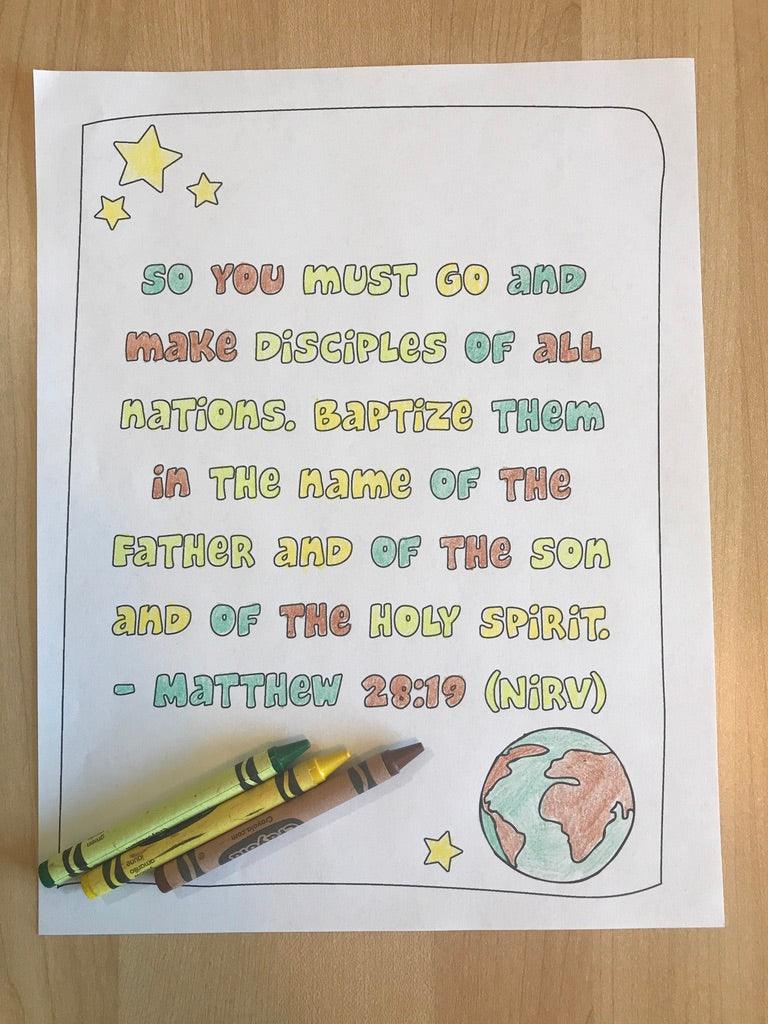 SO YOU MUST GO AND
MAKE DISCIPLES OF ALL
NATIONS. BAPTIZE THEM
IN THE NAME OF THE
FATHER AND OF THE SON
AND OF THE HOLY SPIRIT.
- MATTHEW 28:19 (NIRV)
green
amarillo
jaune
Crayola.com
Crayola